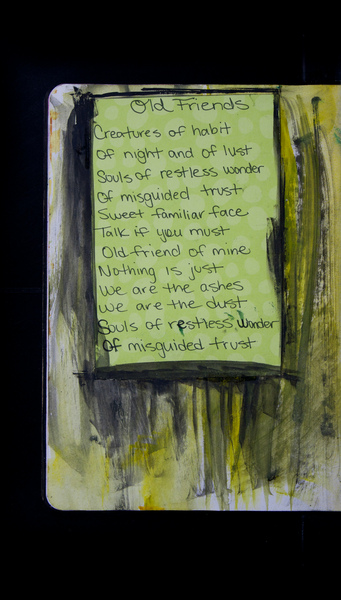 Old Friends
Creatures of habit
Of night and of lust
Souls of restless wonder
Of misguided trust
Sweet familiar face
Talk if you must
Old friend of mine
Nothing is just
We are the ashes
We are the dust
Souls of restless wonder
Of misguided trust